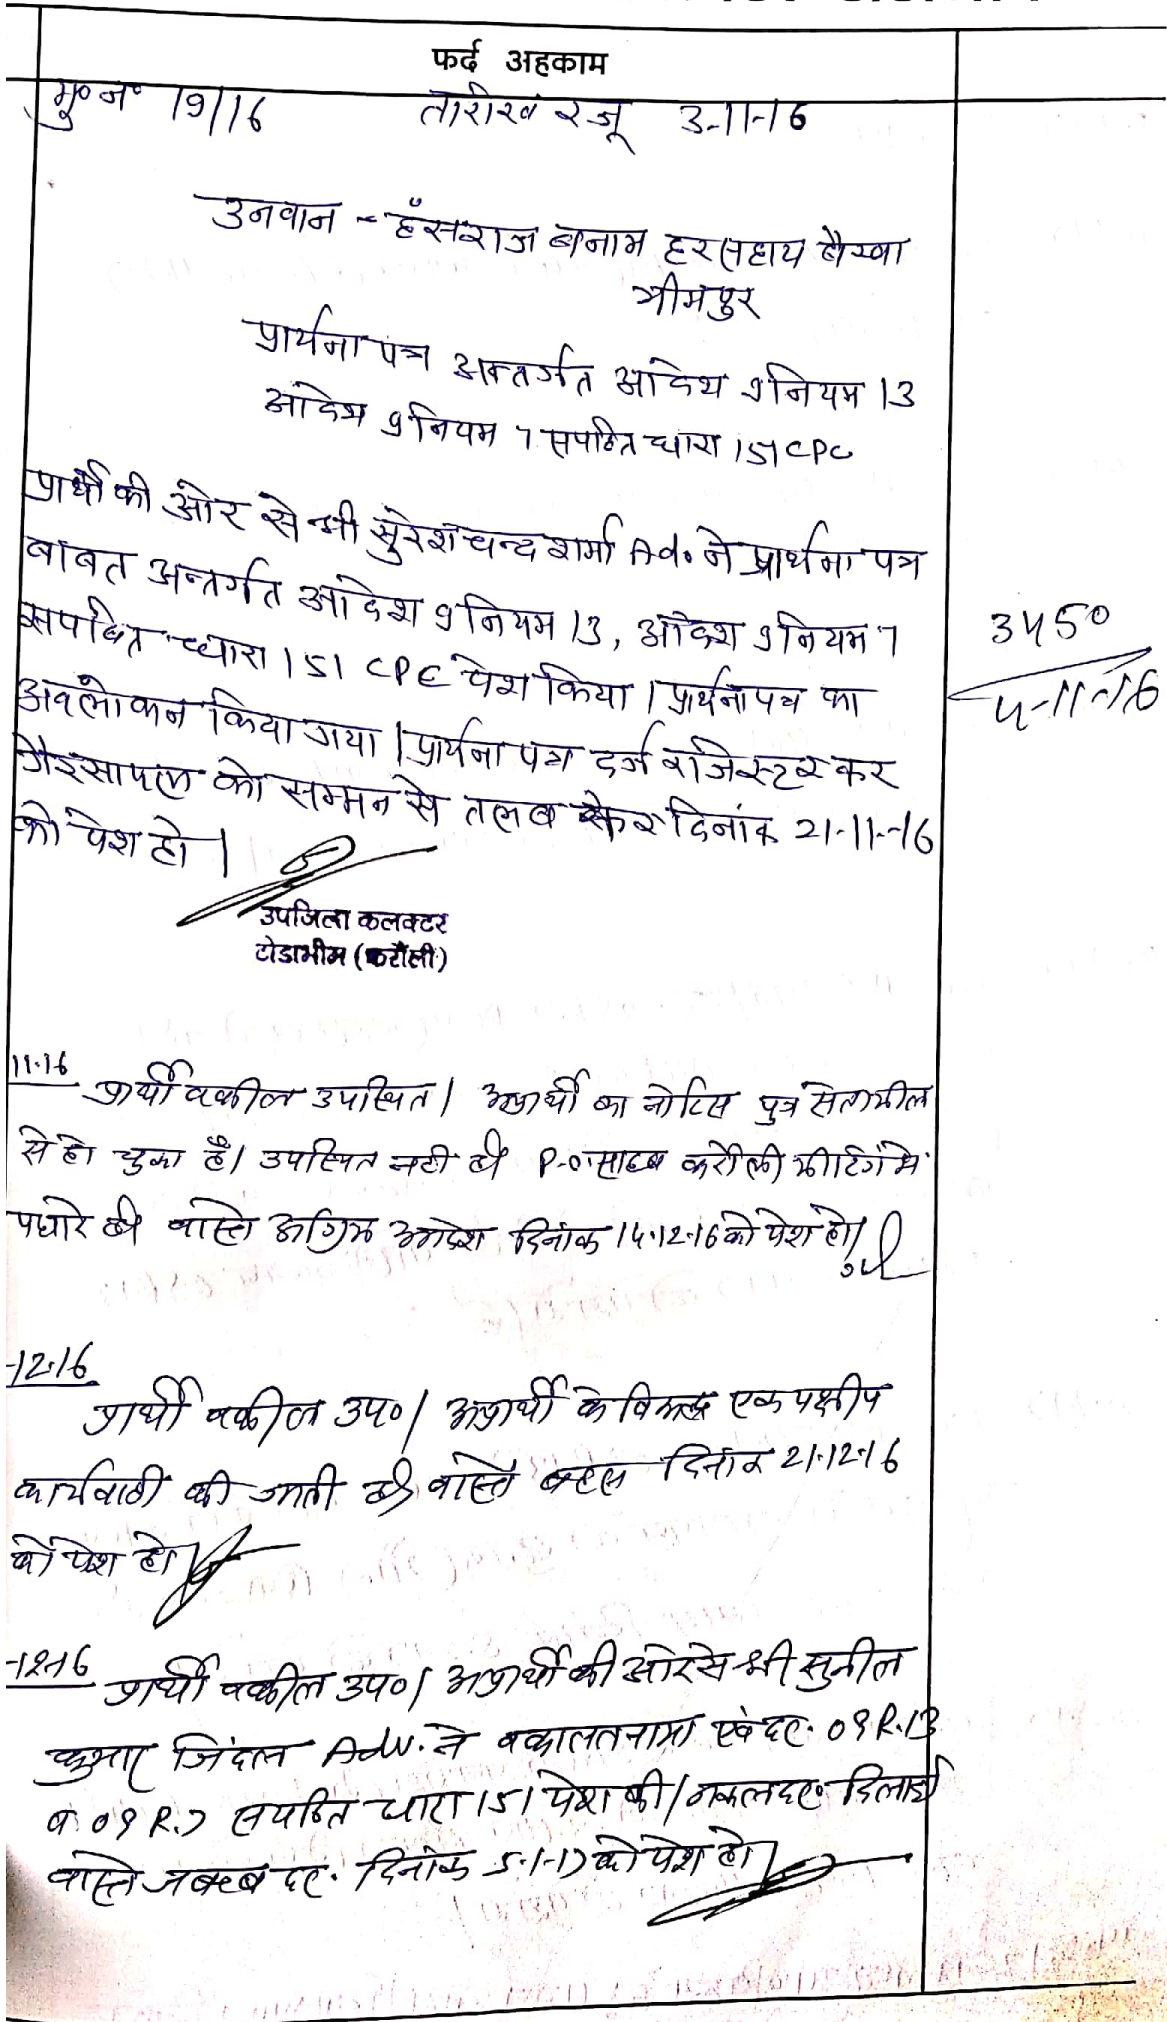 फर्द अहकाम
मु० न० 19/16 तारीख रजू 3-11-16
उनवान - हँसराज बनाम हरसहाय बैरवा
भीमपुर
प्रार्थना पत्र अन्तर्गत आदेश 9 नियम 13
आदेश 9 नियम 7 सपठित धारा 151 CPC
प्रार्थी की ओर से श्री सुरेशचन्द शर्मा Ad. ने प्रार्थना पत्र
बाबत अन्तर्गत आदेश 9 नियम 13, आदेश 9 नियम 7
सपठित धारा 151 CPC पेश किया। प्रार्थना पत्र का
अवलोकन किया गया। प्रार्थना पत्र दर्ज रजिस्टर कर
गैरसायल को सम्मन से तलब होकर दिनांक 21-11-16
को पेश हो।
3450
4-11-16
उपजिला कलक्टर
टोडाभीम (करौली)
11.16 प्रार्थी वकील उपस्थित। अप्रार्थी का नोटिस पुत्र से तामील
से हो चुका है। उपस्थित नही है P.O. साहब करौली मीटिंग मे
पधारे है वास्ते अग्रिम आदेश दिनांक 14.12.16 को पेश हो।
-12.16
प्रार्थी वकील उप०। अप्रार्थी के विरूद्ध एक पक्षीय
कार्यवाही की जाती है वास्ते बहस दिनांक 21.12.16
को पेश हो।
-12-16 प्रार्थी वकील उप०। अप्रार्थी की ओर से श्री सुनील
कुमार जिंदल Adv. ने वकालतनामा एवं दर. 09 R.13
व 09 R.7 सपठित धारा 151 पेश की। नकल दर. दिलाई
वास्ते जबाब दर. दिनांक 5-1-17 को पेश हो।